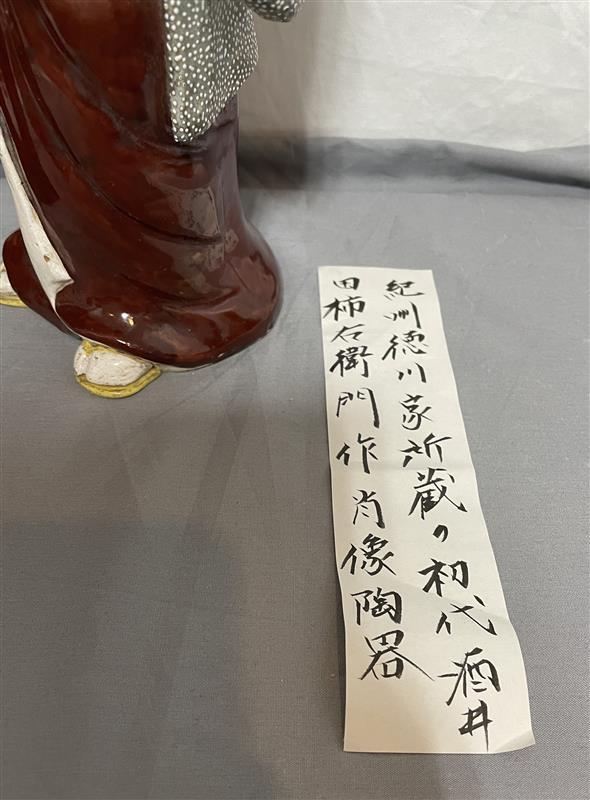 紀州徳川家所蔵の初代酒井
田柿右衛門作肖像陶器